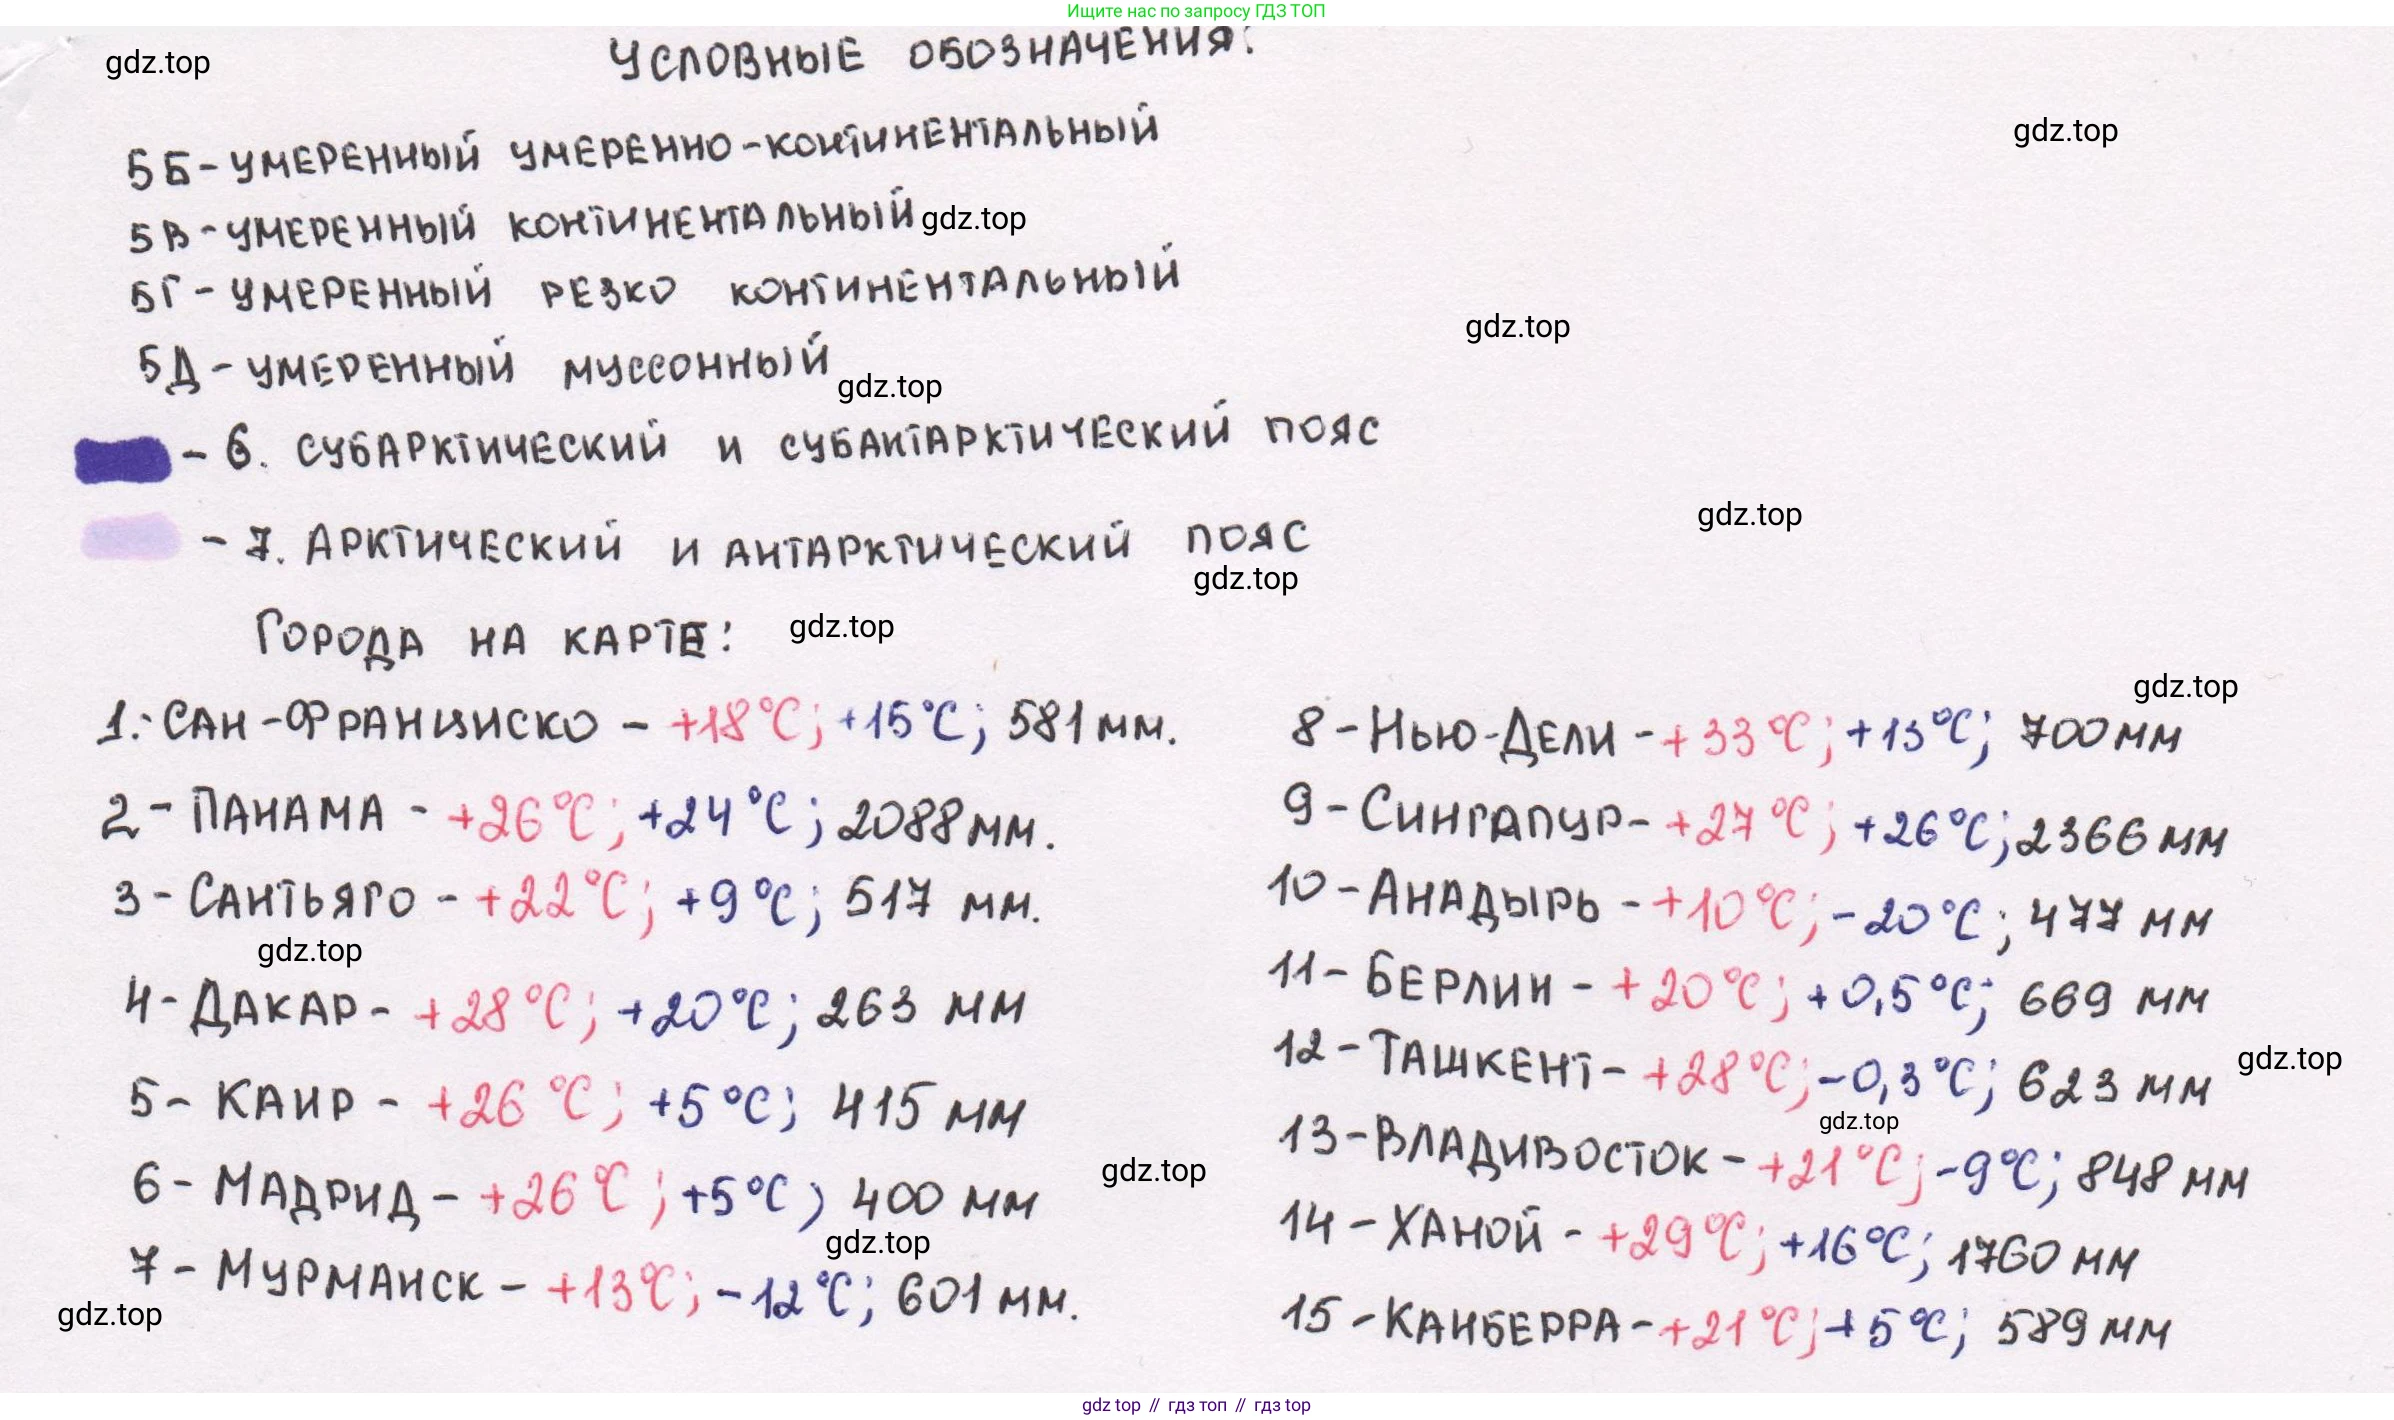 Ищите нас по запросу ГДЗ ТОП
УСЛОВНЫЕ ОБОЗНАЧЕНИЯ:
gdz.top
gdz.top
5Б-УМЕРЕННЫЙ УМЕРЕННО-КОНТИНЕНТАЛЬНЫЙ
5В-УМЕРЕННЫЙ КОНТИНЕНТАЛЬНЫЙ
gdz.top
5Г-УМЕРЕННЫЙ РЕЗКО КОНТИНЕНТАЛЬНЫЙ
gdz.top
5Д-УМЕРЕННЫЙ МУССОННЫЙ
gdz.top
- 6. СУБАРКТИЧЕСКИЙ И СУБАНТАРКТИЧЕСКИЙ ПОЯС
gdz.top
- 7. АРКТИЧЕСКИЙ И АНТАРКТИЧЕСКИЙ ПОЯС
gdz.top
ГОРОДА НА КАРТЕ:
gdz.top
gdz.top
1. САН-ФРАНЦИСКО - +18°C; +15°C; 581 мм.
2 - ПАНАМА - +26°C; +24°C; 2088 мм.
3 - САНТЬЯГО - +22°C; +9°C; 517 мм.
gdz.top
4 - ДАКАР - +28°C; +20°C; 263 мм
5 - КАИР - +26°C; +5°C; 415 мм
gdz.top
6 - МАДРИД - +26°C; +5°C; 400 мм
gdz.top
7 - МУРМАНСК - +13°C; -12°C; 601 мм.
gdz.top
8 - НЬЮ-ДЕЛИ - +33°C; +13°C; 700 мм
9 - СИНГАПУР - +27°C; +26°C; 2366 мм
10 - АНАДЫРЬ - +10°C; -20°C; 477 мм
11 - БЕРЛИН - +20°C; +0,5°C; 669 мм
12 - ТАШКЕНТ - +28°C; -0,3°C; 623 мм
gdz.top
gdz.top
13 - ВЛАДИВОСТОК - +21°C; -9°C; 848 мм
14 - ХАНОЙ - +29°C; +16°C; 1760 мм
15 - КАНБЕРРА - +21°C; +5°C; 589 мм
gdz top // гдз топ // gdz top